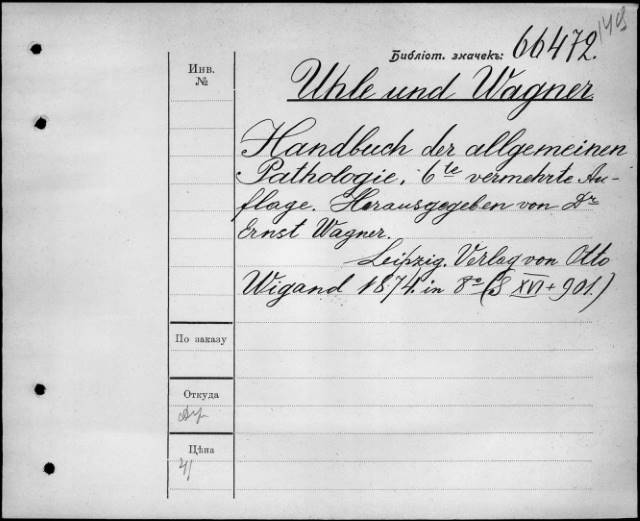 149
Библіот. значекъ: 66472.
Инв.
№
Uhle und Wagner
Handbuch der allgemeinen
Pathologie. 6te vermehrte Au-
flage. Herausgegeben von Dr
Ernst Wagner.
Leipzig. Verlag von Otto
Wigand 1874. in 8o (S XVI + 901.)
По заказу
Откуда
Цѣна